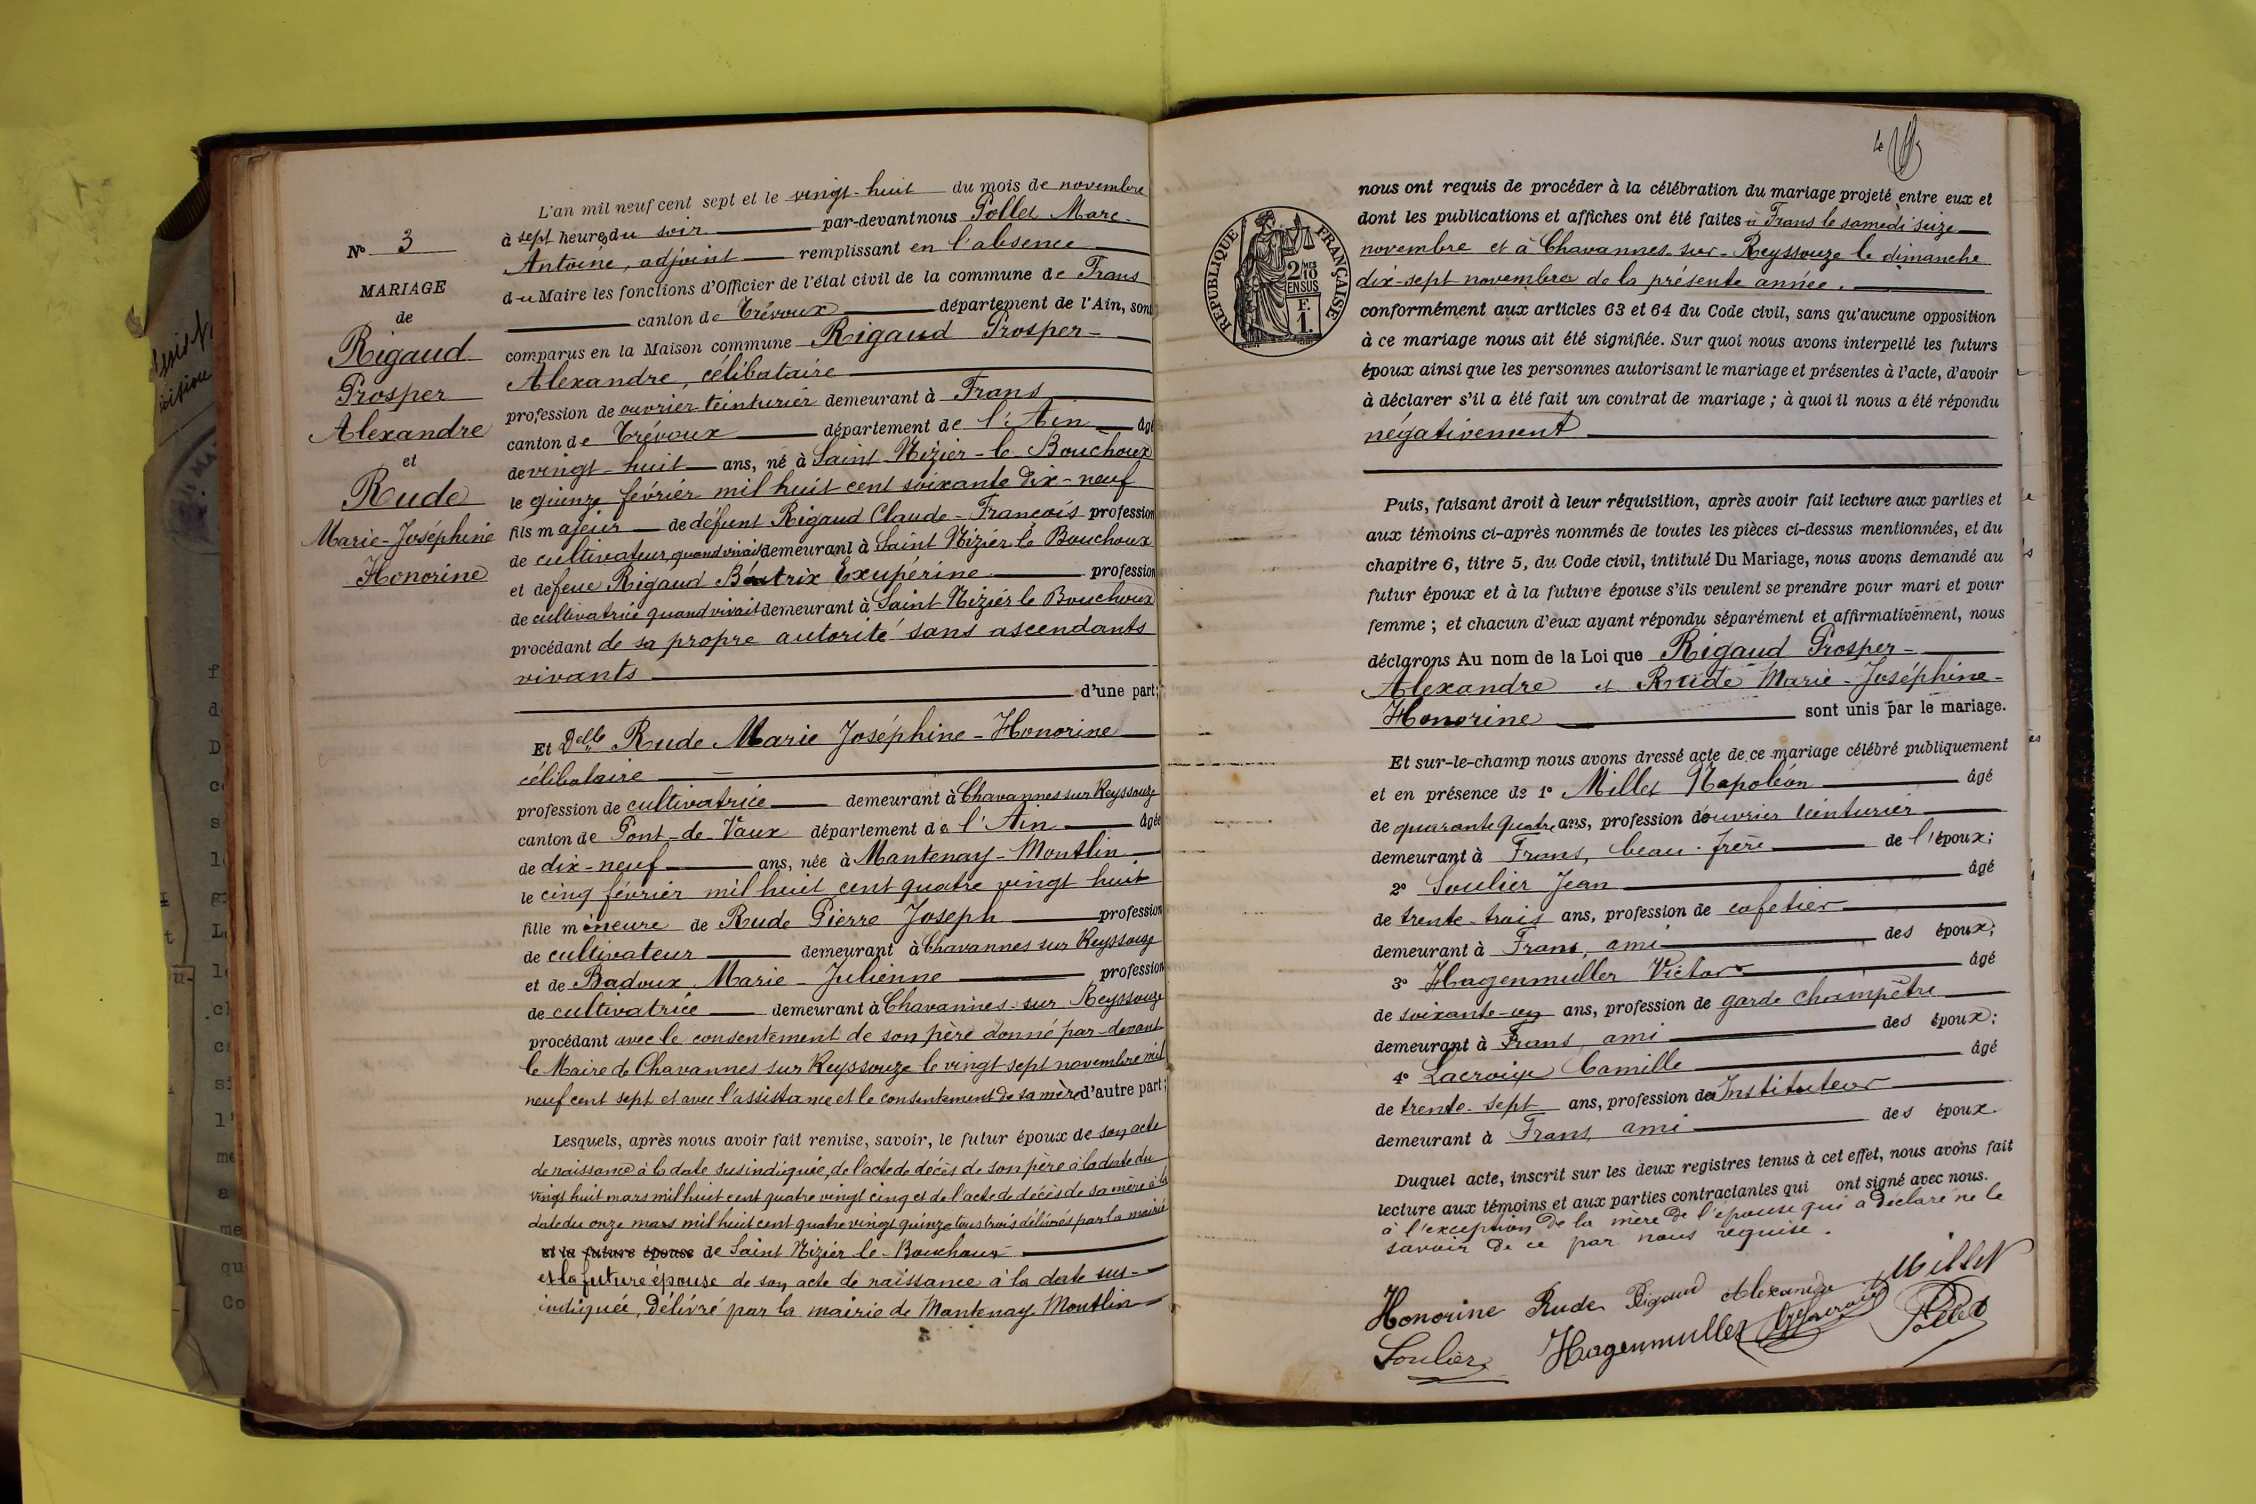 N° 3
MARIAGE
de
Rigaud
Prosper
Alexandre
et
Rude
Marie-Joséphine
Honorine
L'an mil neuf cent sept et le vingt-huit du mois de novembre
à sept heures du soir par-devant nous Pollet Marc-
Antoine, adjoint remplissant en l'absence
du Maire les fonctions d'Officier de l'état civil de la commune de Frans
canton de Trévoux département de l'Ain, sont
comparus en la Maison commune Rigaud Prosper-
Alexandre, célibataire
profession de ouvrier teinturier demeurant à Frans
canton de Trévoux département de l'Ain âgé
de vingt-huit ans, né à Saint-Nizier-le Bouchoux
le quinze février mil huit cent soixante dix-neuf
fils majeur de défunt Rigaud Claude-François profession
de cultivateur quand vivait demeurant à Saint Nizier le Bouchoux
et de feue Rigaud Béatrix Exupérine profession
de cultivatrice quand vivait demeurant à Saint Nizier le Bouchoux
procédant de sa propre autorité sans ascendants
vivants
d'une part;
Et Delle Rude Marie Joséphine-Honorine
célibataire
profession de cultivatrice demeurant à Chavannes sur Reyssouze
canton de Pont-de-Vaux département de l'Ain âgée
de dix-neuf ans, née à Mantenay-Montlin
le cinq février mil huit cent quatre vingt huit
fille mineure de Rude Pierre Joseph profession
de cultivateur demeurant à Chavannes sur Reyssouze
et de Badoux Marie-Julienne profession
de cultivatrice demeurant à Chavannes-sur Reyssouze
procédant avec le consentement de son père donné par-devant
le Maire de Chavannes sur Reyssouze le vingt-sept novembre mil
neuf cent sept et avec l'assistance et le consentement de sa mère d'autre part;
Lesquels, après nous avoir fait remise, savoir, le futur époux de son acte
de naissance à la date susindiquée, de l'acte de décès de son père à la date du
vingt huit mars mil huit cent quatre vingt cinq et de l'acte de décès de sa mère à la
date du onze mars mil huit cent quatre vingt quinze tous trois délivrés par la mairie
et la future épouse de Saint Nizier le-Bouchoux
et la future épouse de son acte de naissance à la date sus-
indiquée, délivré par la mairie de Mantenay Montlin
RÉPUBLIQUE FRANÇAISE
2/10
EN SUS
F.
1.
nous ont requis de procéder à la célébration du mariage projeté entre eux et
dont les publications et affiches ont été faites à Frans le samedi seize
novembre et à Chavannes-sur-Reyssouze le dimanche
dix-sept novembre de la présente année.
conformément aux articles 63 et 64 du Code civil, sans qu'aucune opposition
à ce mariage nous ait été signifiée. Sur quoi nous avons interpellé les futurs
époux ainsi que les personnes autorisant le mariage et présentes à l'acte, d'avoir
à déclarer s'il a été fait un contrat de mariage ; à quoi il nous a été répondu
négativement
Puis, faisant droit à leur réquisition, après avoir fait lecture aux parties et
aux témoins ci-après nommés de toutes les pièces ci-dessus mentionnées, et du
chapitre 6, titre 5, du Code civil, intitulé Du Mariage, nous avons demandé au
futur époux et à la future épouse s'ils veulent se prendre pour mari et pour
femme ; et chacun d'eux ayant répondu séparément et affirmativement, nous
déclarons Au nom de la Loi que Rigaud Prosper-
Alexandre et Rude Marie-Joséphine-
Honorine sont unis par le mariage.
Et sur-le-champ nous avons dressé acte de ce mariage célébré publiquement
et en présence de 1° Millet Napoléon âgé
de quarante quatre ans, profession d'ouvrier teinturier
demeurant à Frans, beau-frère de l'époux;
2° Soulier Jean âgé
de trente-trois ans, profession de cafetier
demeurant à Frans, ami des époux;
3° Hagenmuller Victor âgé
de soixante-un ans, profession de garde champêtre
demeurant à Frans, ami des époux;
4° Lacroix Camille âgé
de trente-sept ans, profession de Instituteur
demeurant à Frans, ami des époux.
Duquel acte, inscrit sur les deux registres tenus à cet effet, nous avons fait
lecture aux témoins et aux parties contractantes qui ont signé avec nous.
à l'exception de la mère de l'épouse qui a déclaré ne le
savoir de ce par nous requise.
Honorine Rude Rigaud Alexandre Millet
Soulier Hagenmuller Lacroix Pollet